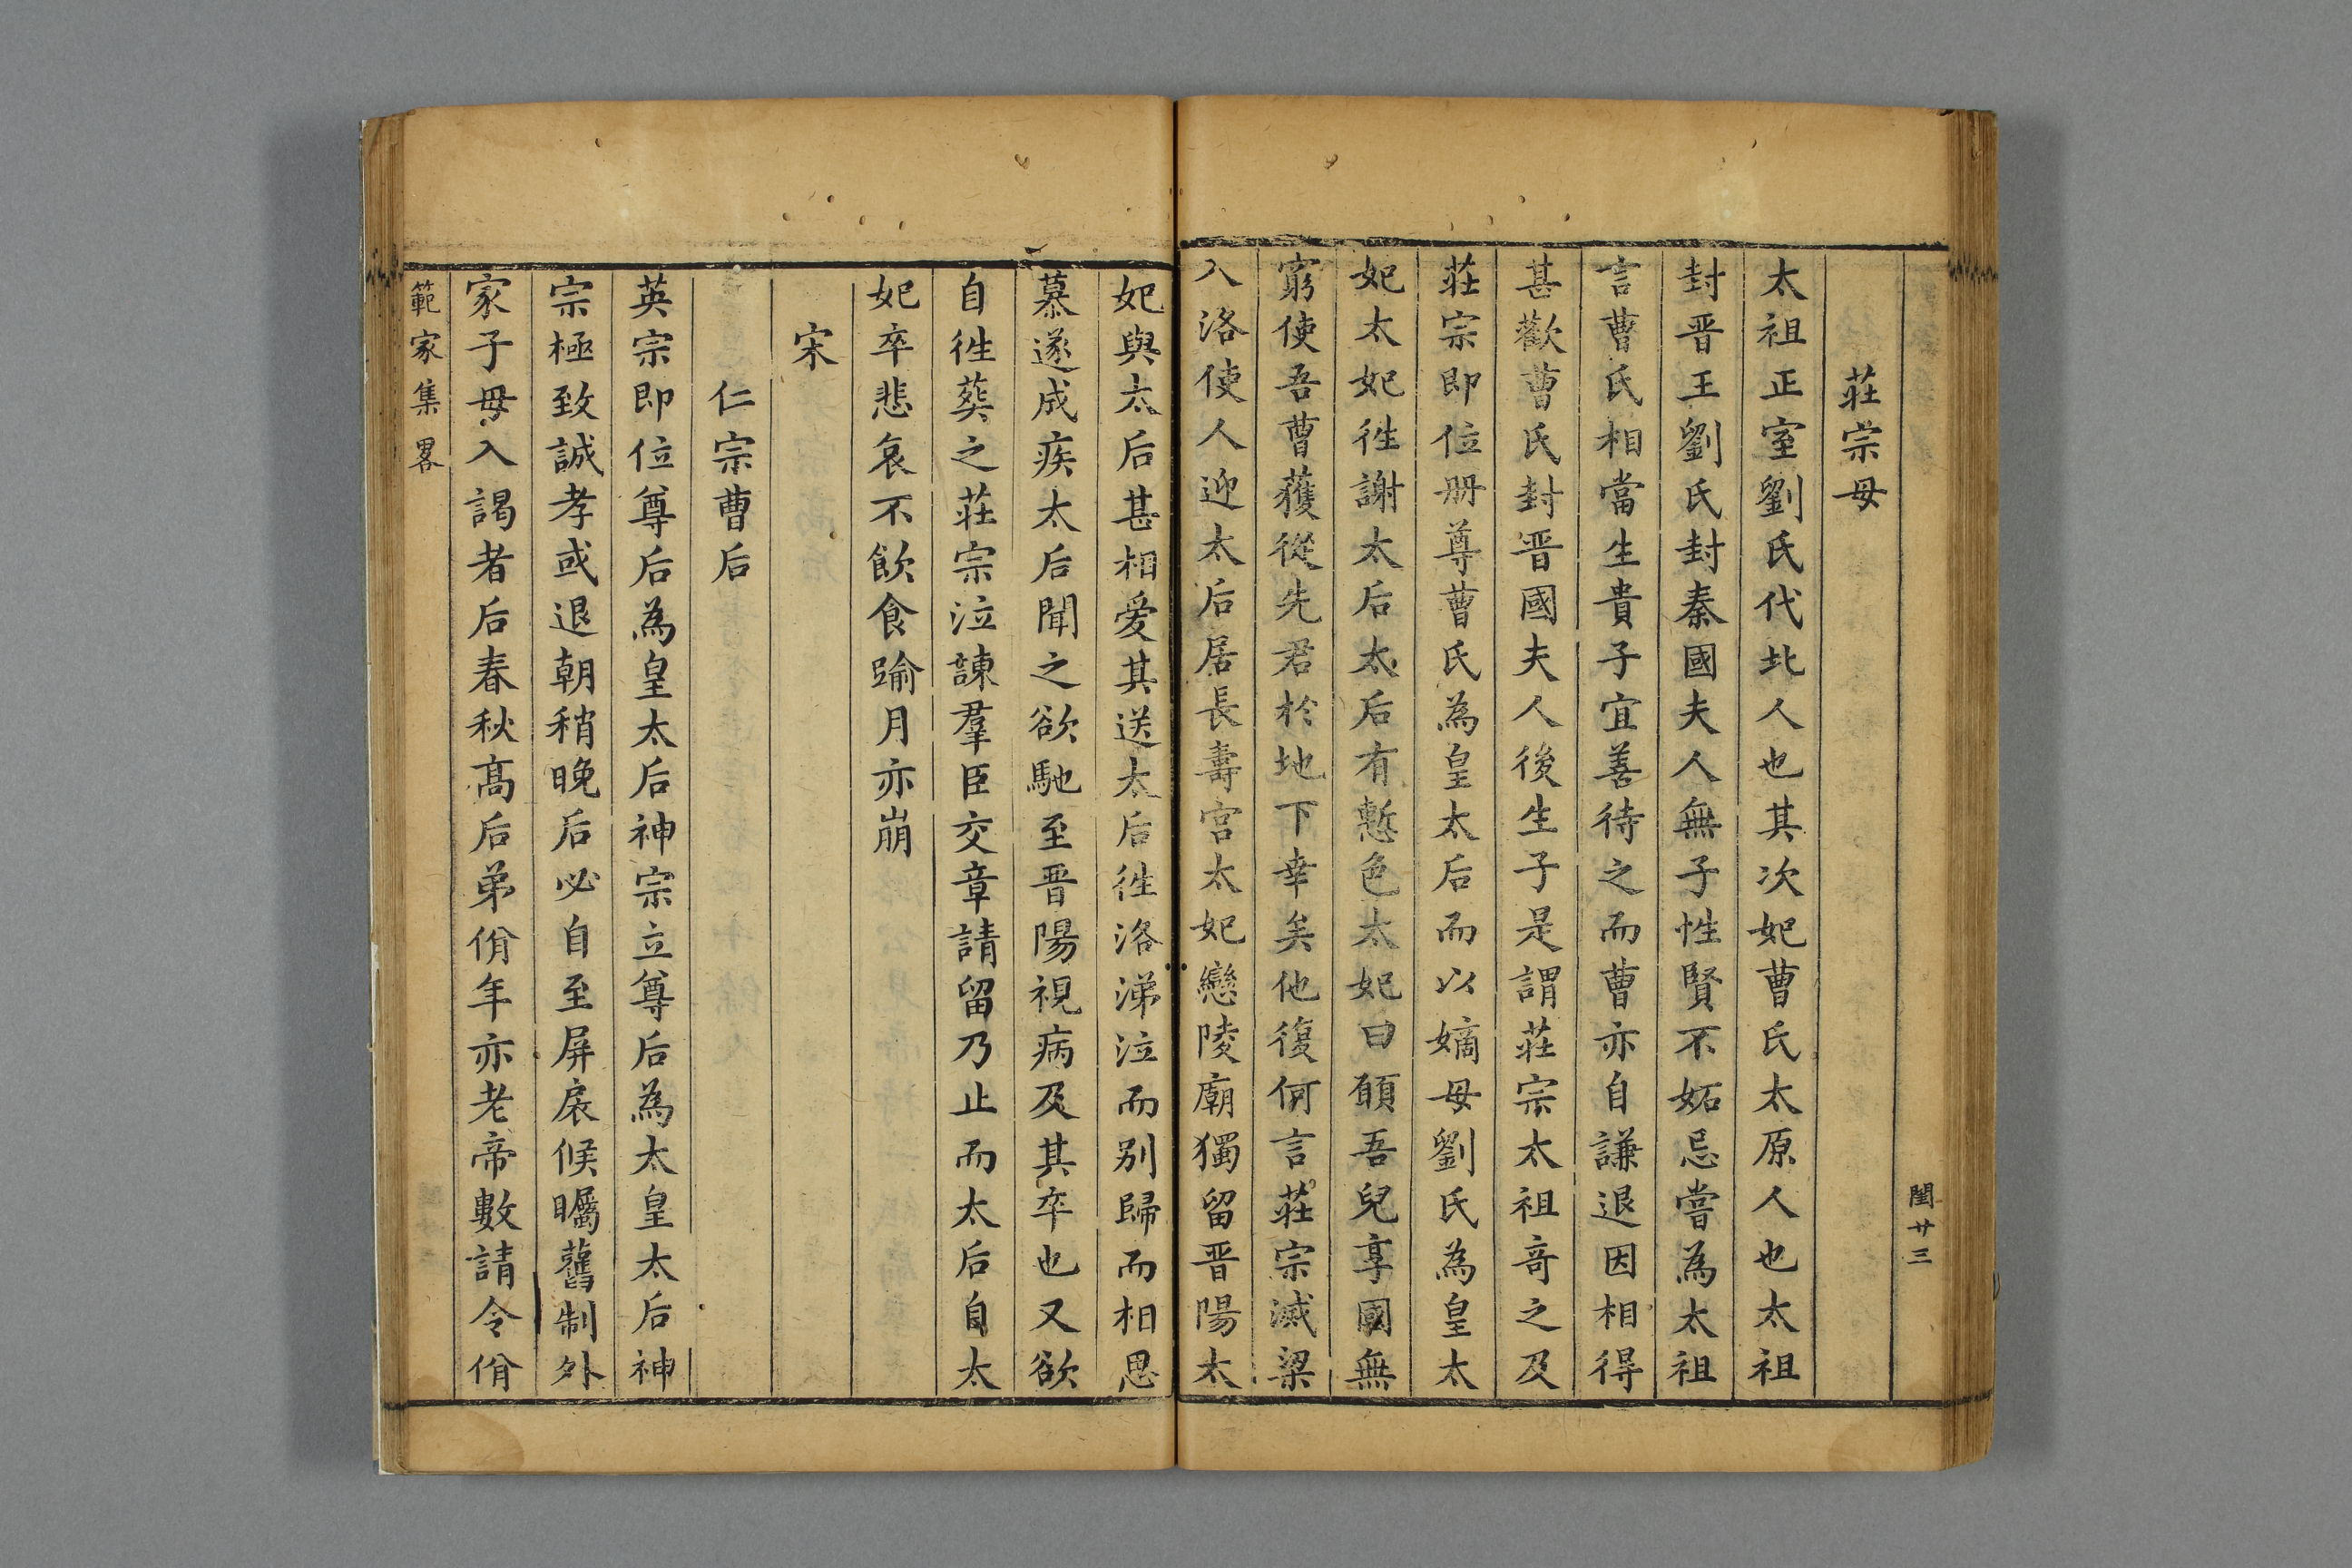 閨廿三
莊宗母
太祖正室劉氏代北人也其次妃曹氏太原人也太祖
封晋王劉氏封秦國夫人無子性賢不妬忌嘗為太祖
言曹氏相當生貴子宜善待之而曹亦自謙退因相得
甚歡曹氏封晋國夫人後生子是謂莊宗太祖竒之及
莊宗即位册尊曹氏為皇太后而以嫡母劉氏為皇太
妃太妃徃謝太后太后有慙色太妃曰願吾兒享國無
窮使吾曹獲從先君於地下幸矣他復何言莊宗滅梁
入洛使人迎太后居長壽宫太妃戀陵廟獨留晋陽太
妃與太后甚相爱其送太后徃洛涕泣而别歸而相思
慕遂成疾太后聞之欲馳至晋陽視病及其卒也又欲
自徃葬之莊宗泣諫羣臣交章請留乃止而太后自太
妃卒悲哀不飲食踰月亦崩
宋
仁宗曹后
英宗即位尊后為皇太后神宗立尊后為太皇太后神
宗極致誠孝或退朝稍晚后必自至屏扆候矚舊制外
家子毋入謁者后春秋髙后弟佾年亦老帝數請令佾
範家集畧